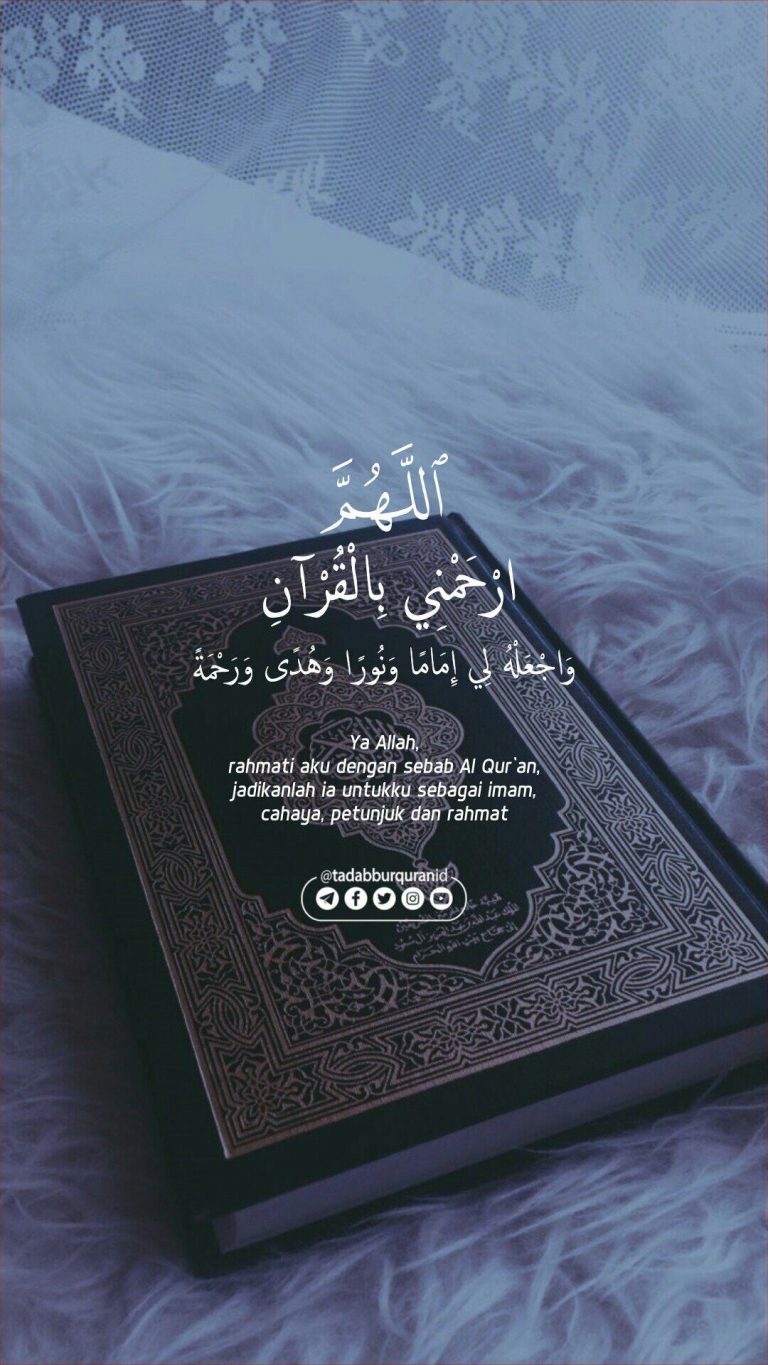 ٱللَّهُمَّ
ارْحَمْنِي بِالْقُرْآنِ
وَاجْعَلْهُ لِي إِمَامًا وَنُورًا وَهُدًى وَرَحْمَةً
Ya Allah,
rahmati aku dengan sebab Al Qur'an,
jadikanlah ia untukku sebagai imam,
cahaya, petunjuk dan rahmat
@tadabburquranid